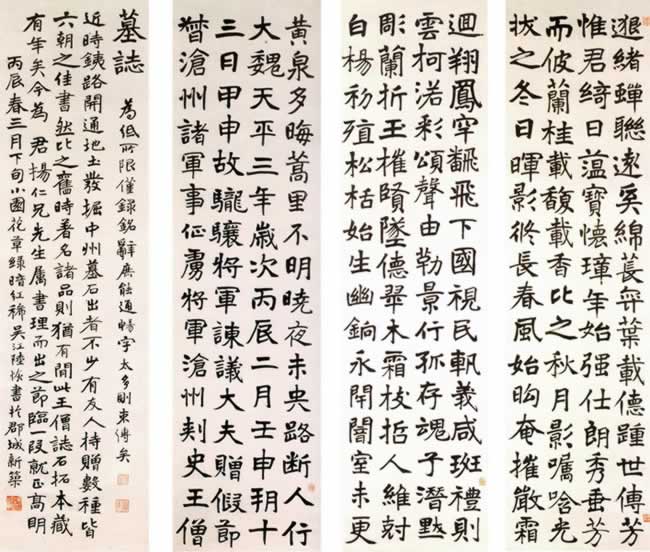 遐緒蟬聯遼矣綿萇弈葉載德踵世傳芳
惟君綺日蘊寶懷璋年始强仕朗秀垂芳
而彼蘭桂載馥載香比之秋月影嘱唅光
拔之冬日暉影終長春風始昫奄摧嚴霜
迴翔鳳穴翻飛下國視民軌義咸班禮則
雲柯渃彩頌聲由勒景行孤存魂子潛黙
彫蘭折玉摧賢墜德翠木霜枝哲人維尅
白楊初殖松栝始生幽銷永閇闇室未更
黄泉多晦蒿里不明曉夜未央路断人行
大魏天平三年歲次丙辰二月壬申朔十
三日甲申故驡驤將軍諫議大夫贈假節
督滄州諸軍事征虜將軍滄州刾史王僧
墓誌 為低所限僅錄銘辭庶能通暢字太多則束縛矣
近時鐵路開通地土發掘中州墓石出者不少有友人持贈數種皆
六朝之佳書然比之舊時著名諸品則猶有間此王僧誌石拓本藏
有年矣今為 君揚仁兄先生屬書理而出之節臨一段就正高明
丙辰春三月下旬小園花章綠暗紅稀吳江陸恢書於郡城新築